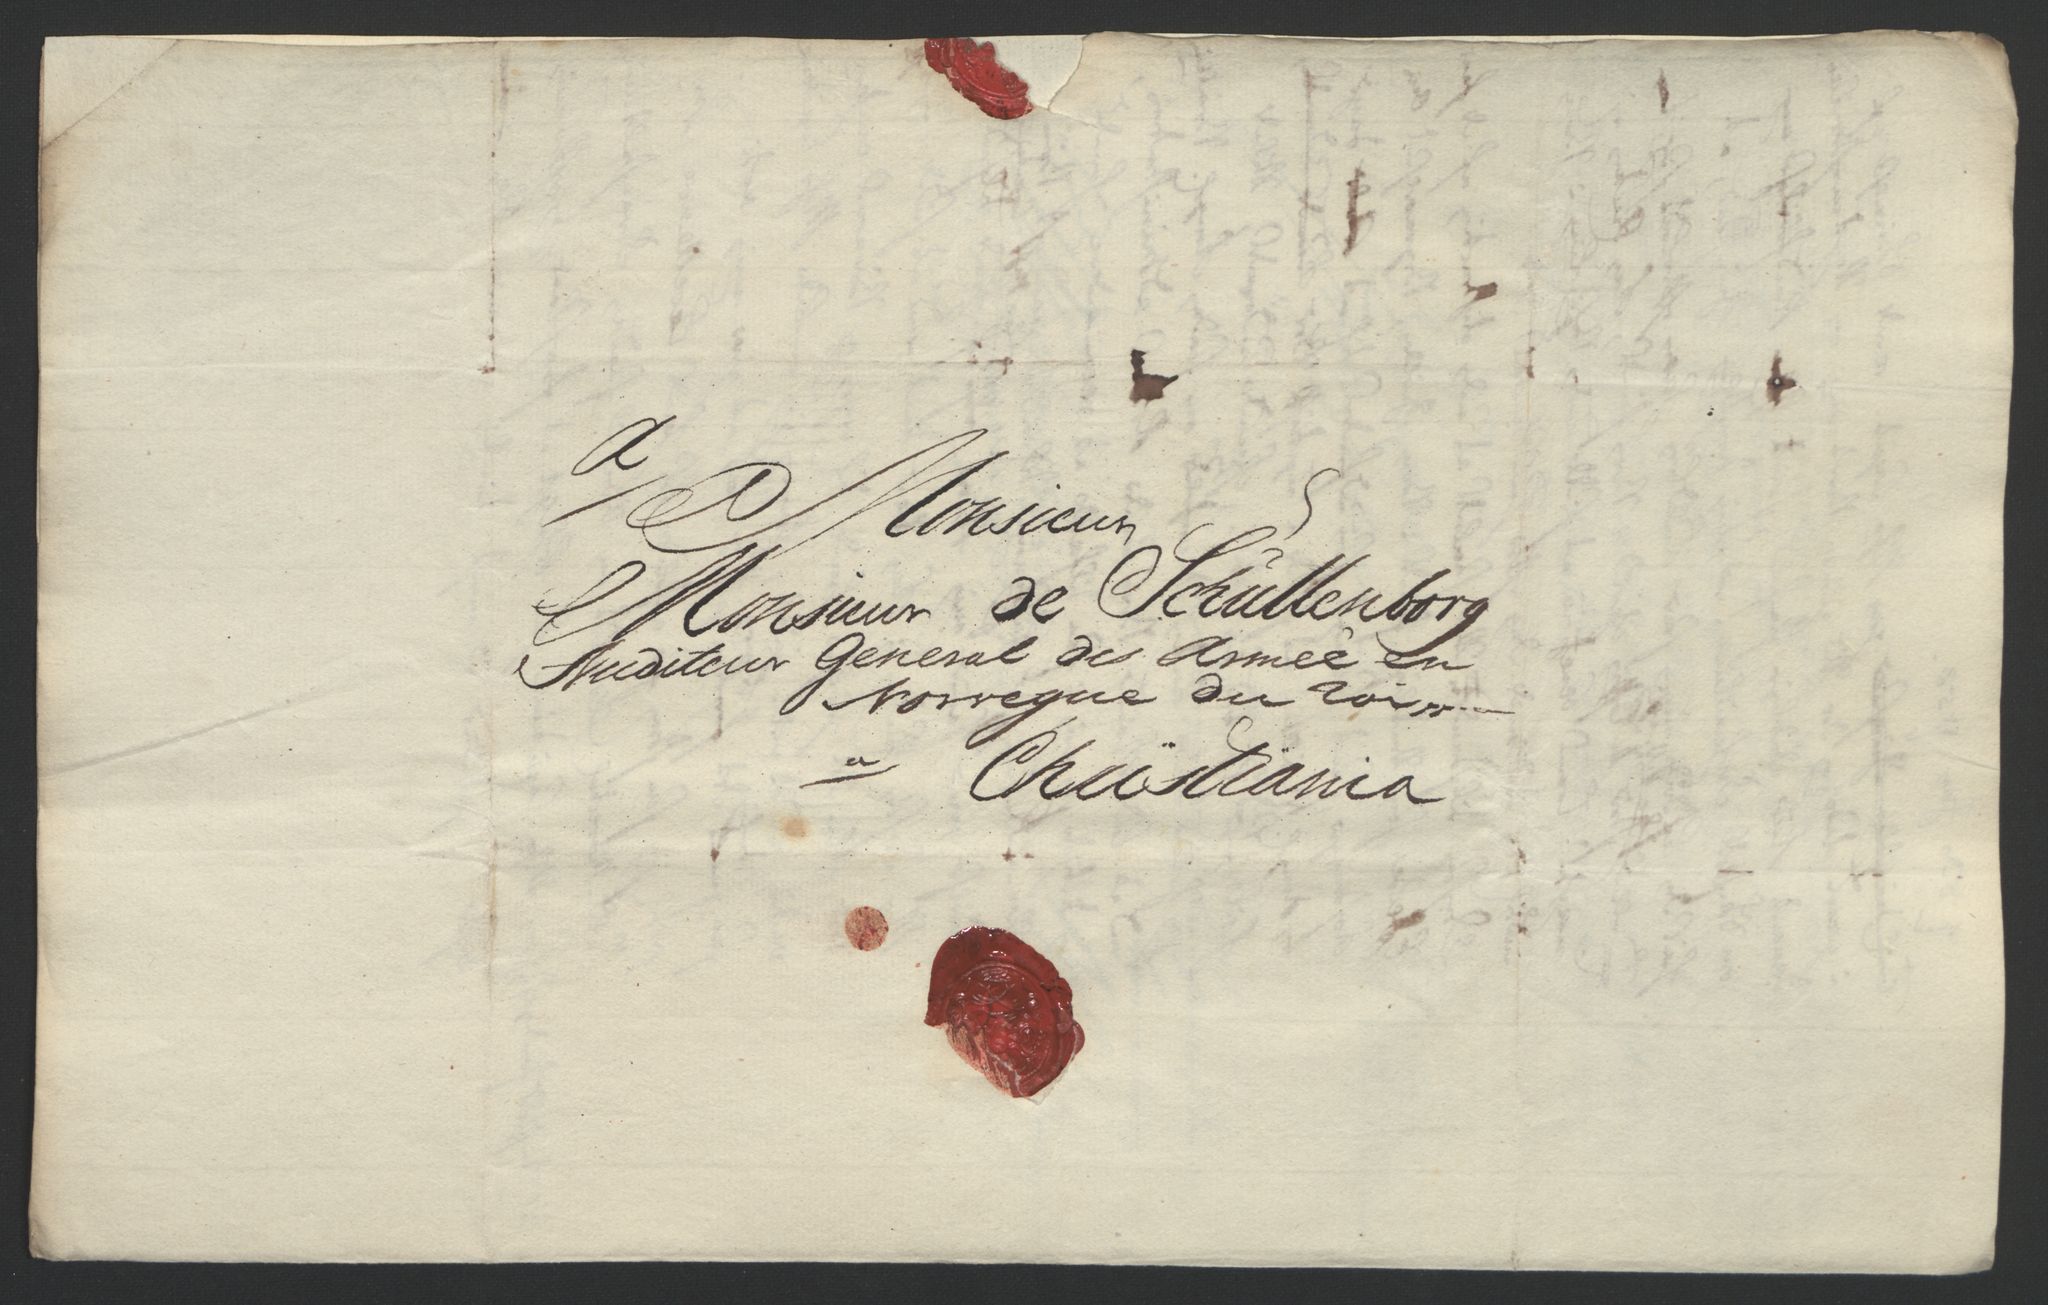 a
Monsieur
Monsieur de Schullenborg
Auditeur General des Armeé en
Norregue du Roi
a Christiania